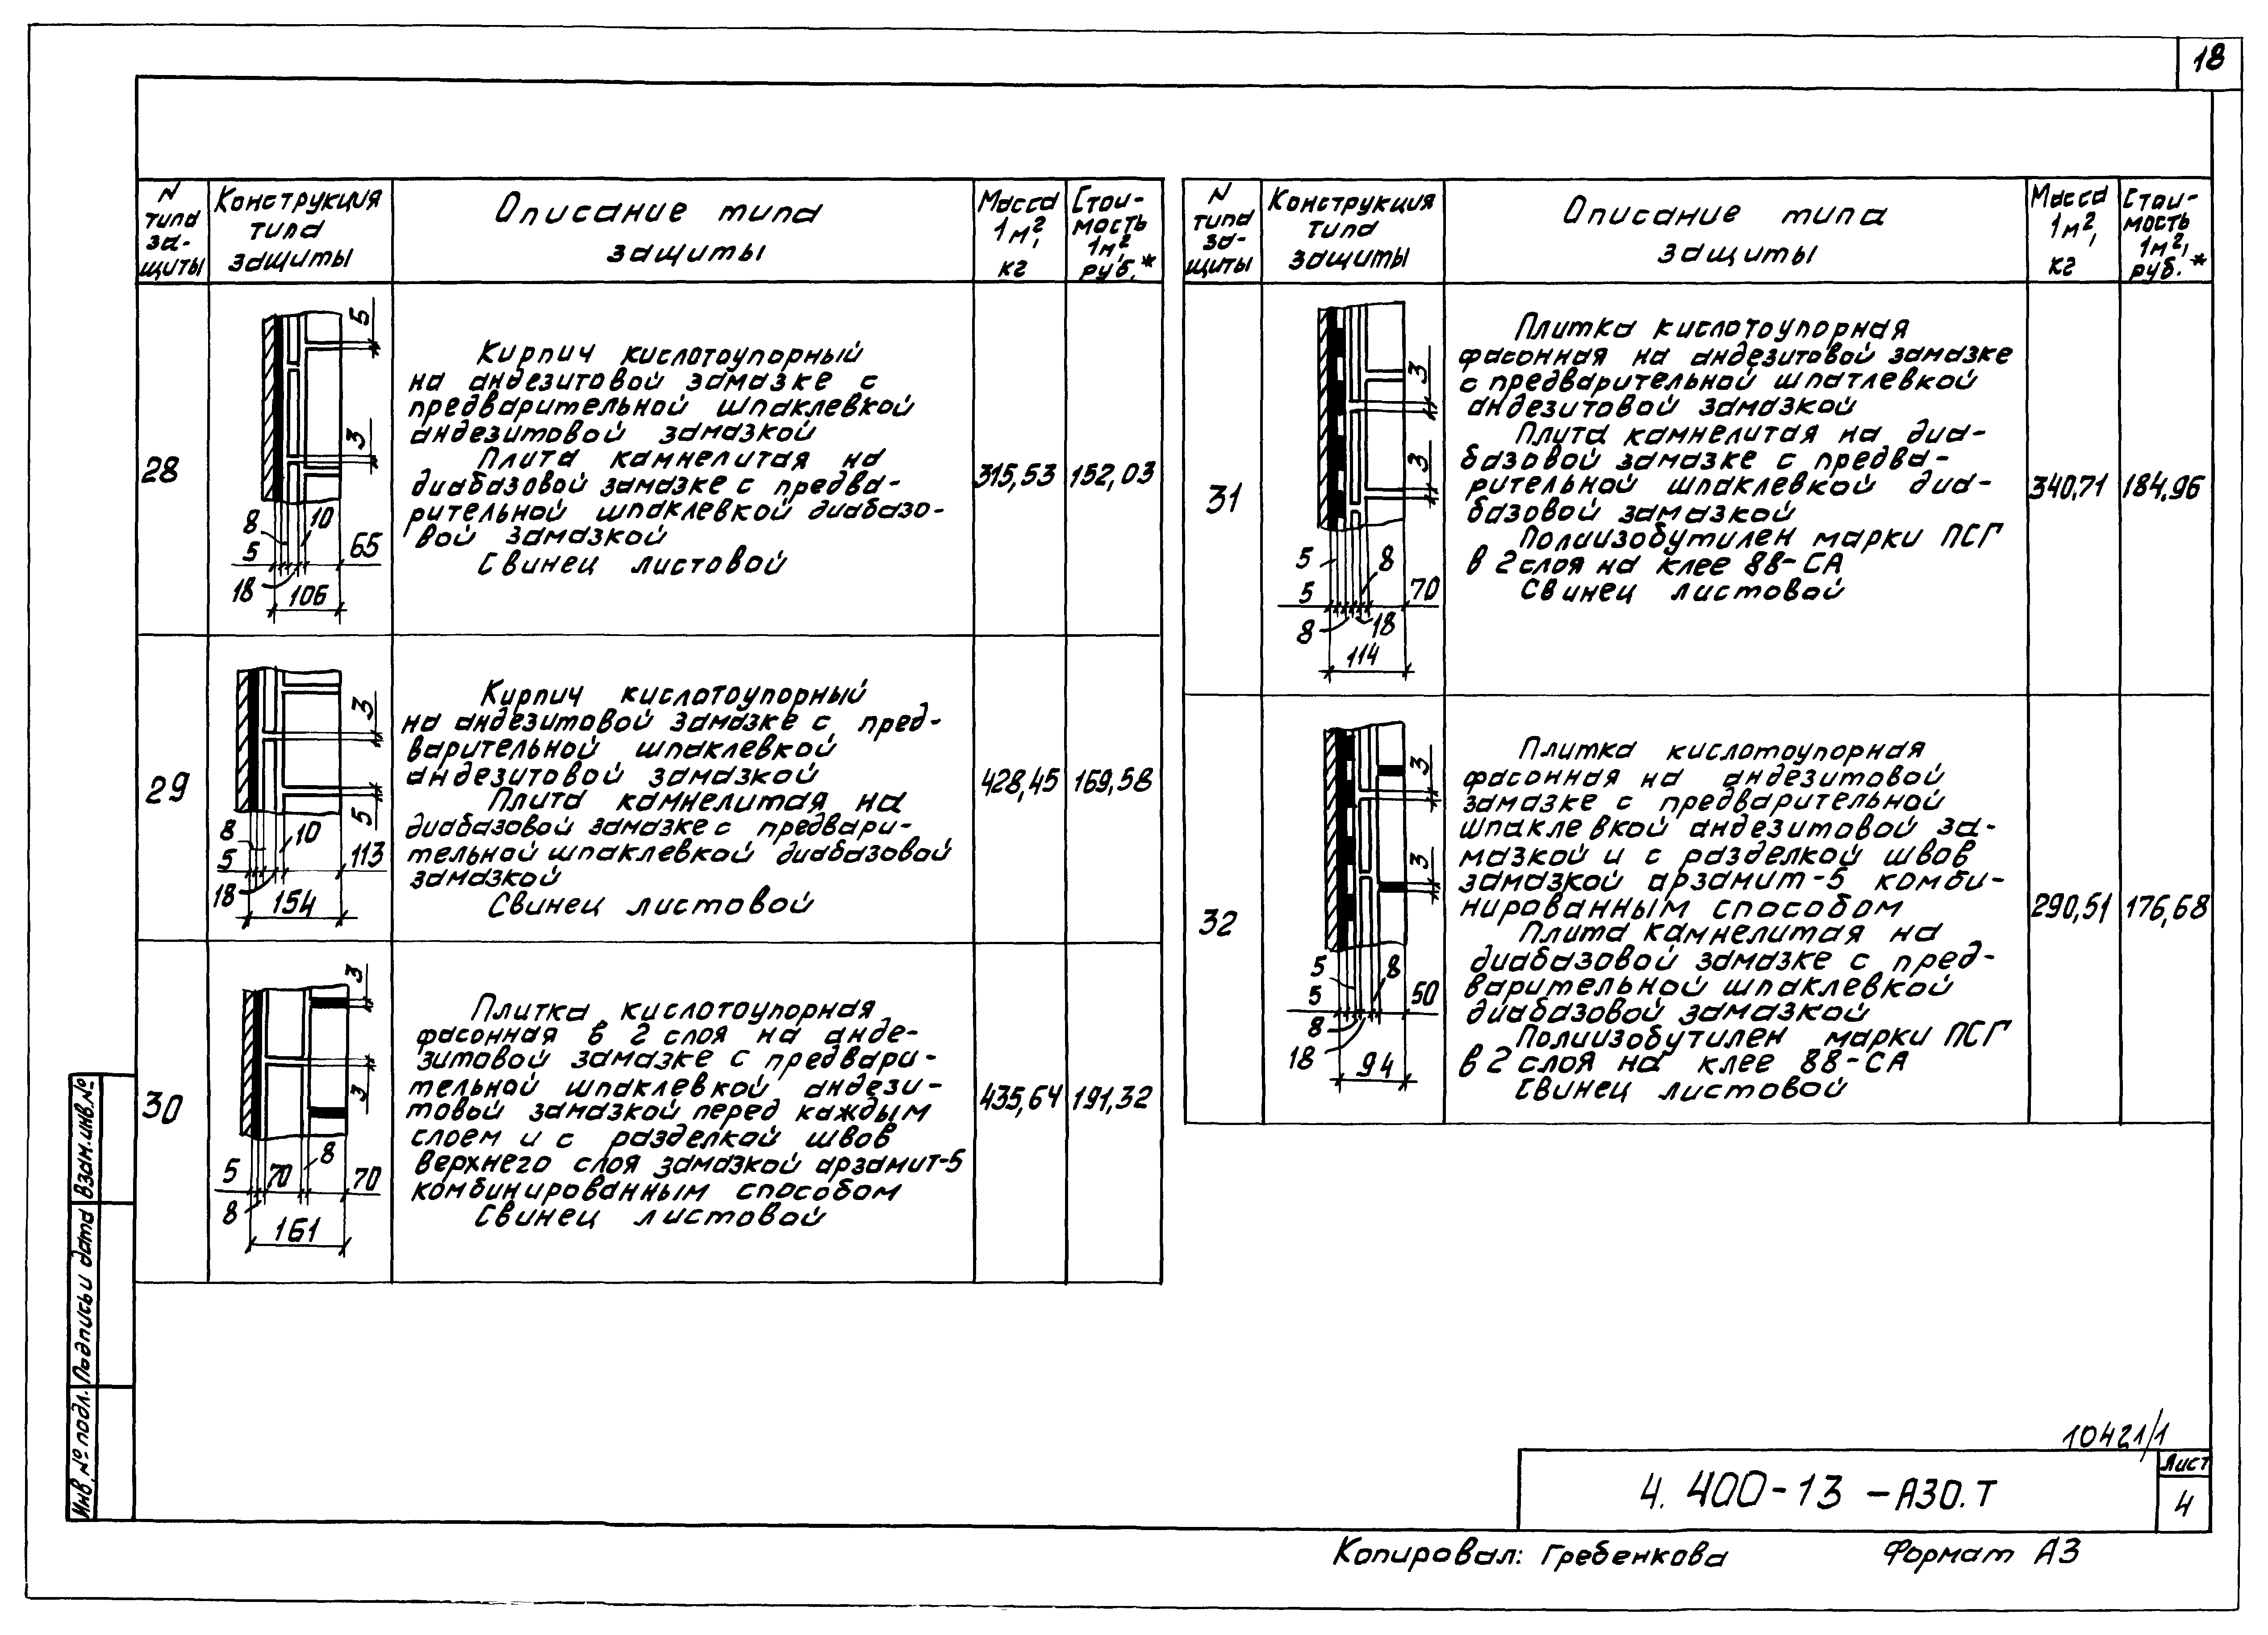 18
N типа за-щиты
Конструкция типа защиты
Описание типа защиты
Масса 1м², кг
Стои-мость 1м², руб.*
28
5
3
8
10
5
65
18
106
Кирпич кислотоупорный
на андезитовой замазке с
предварительной шпаклевкой
андезитовой замазкой
Плита камнелитая на
диабазовой замазке с предва-
рительной шпаклевкой диабазо-
вой замазкой
Свинец листовой
315,53
152,03
29
3
5
8
10
5
113
18
154
Кирпич кислотоупорный
на андезитовой замазке с пред-
варительной шпаклевкой
андезитовой замазкой
Плита камнелитая на
диабазовой замазке с предвари-
тельной шпаклевкой диабазовой
замазкой
Свинец листовой
428,45
169,58
30
3
3
8
5
70
70
8
161
Плитка кислотоупорная
фасонная в 2 слоя на анде-
зитовой замазке с предвари-
тельной шпаклевкой андези-
товой замазкой перед каждым
слоем и с разделкой швов
верхнего слоя замазкой арзамит-5
комбинированным способом
Свинец листовой
435,64
191,32
N типа за-щиты
Конструкция типа защиты
Описание типа защиты
Масса 1м², кг
Стои-мость 1м², руб.*
31
3
3
5
8
5
70
8
18
114
Плитка кислотоупорная
фасонная на андезитовой замазке
с предварительной шпатлевкой
андезитовой замазкой
Плита камнелитая на диа-
базовой замазке с предва-
рительной шпаклевкой диа-
базовой замазкой
Полиизобутилен марки ПСГ
в 2 слоя на клее 88-СА
Свинец листовой
340,71
184,96
32
3
3
5
8
5
50
8
18
94
Плитка кислотоупорная
фасонная на андезитовой
замазке с предварительной
шпаклевкой андезитовой за-
мазкой и с разделкой швов
замазкой арзамит-5 комби-
нированным способом
Плита камнелитая на
диабазовой замазке с пред-
варительной шпаклевкой
диабазовой замазкой
Полиизобутилен марки ПСГ
в 2 слоя на клее 88-СА
Свинец листовой
290,51
176,68
Взам.инв.№
Подпись и дата
Инв.№подл.
10421/1
4.400-13-А30.Т
Лист
4
Копировал: Гребенкова
Формат А3